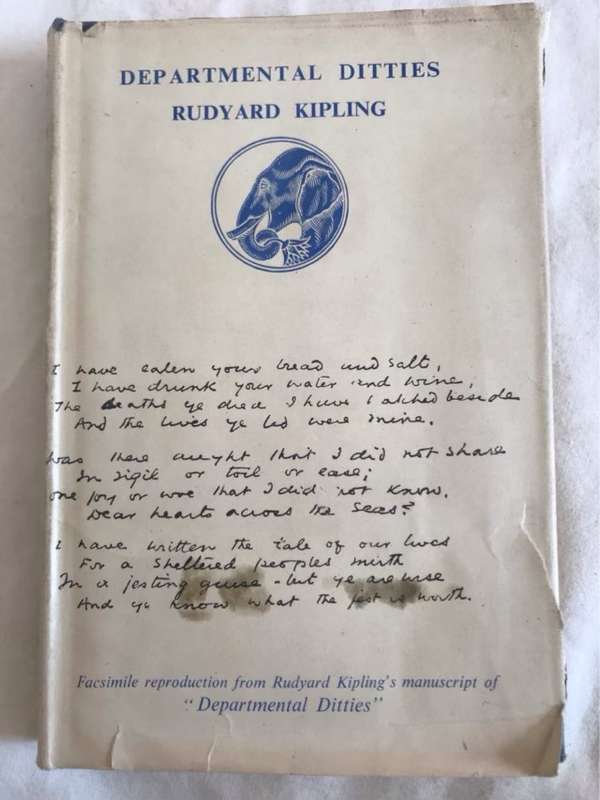 DEPARTMENTAL DITTIES
RUDYARD KIPLING
I have eaten your bread and salt,
I have drunk your water and wine,
The deaths ye died I have watched beside
And the lives ye led were mine.
Was there aught that I did not share
In vigil or toil or ease;
One joy or woe that I did not know,
Dear hearts across the seas?
I have written the tale of our lives
For a sheltered peoples mirth
In a jesting guise - but ye are wise
And ye know what the jest is worth.
Facsimile reproduction from Rudyard Kipling's manuscript of
"Departmental Ditties"